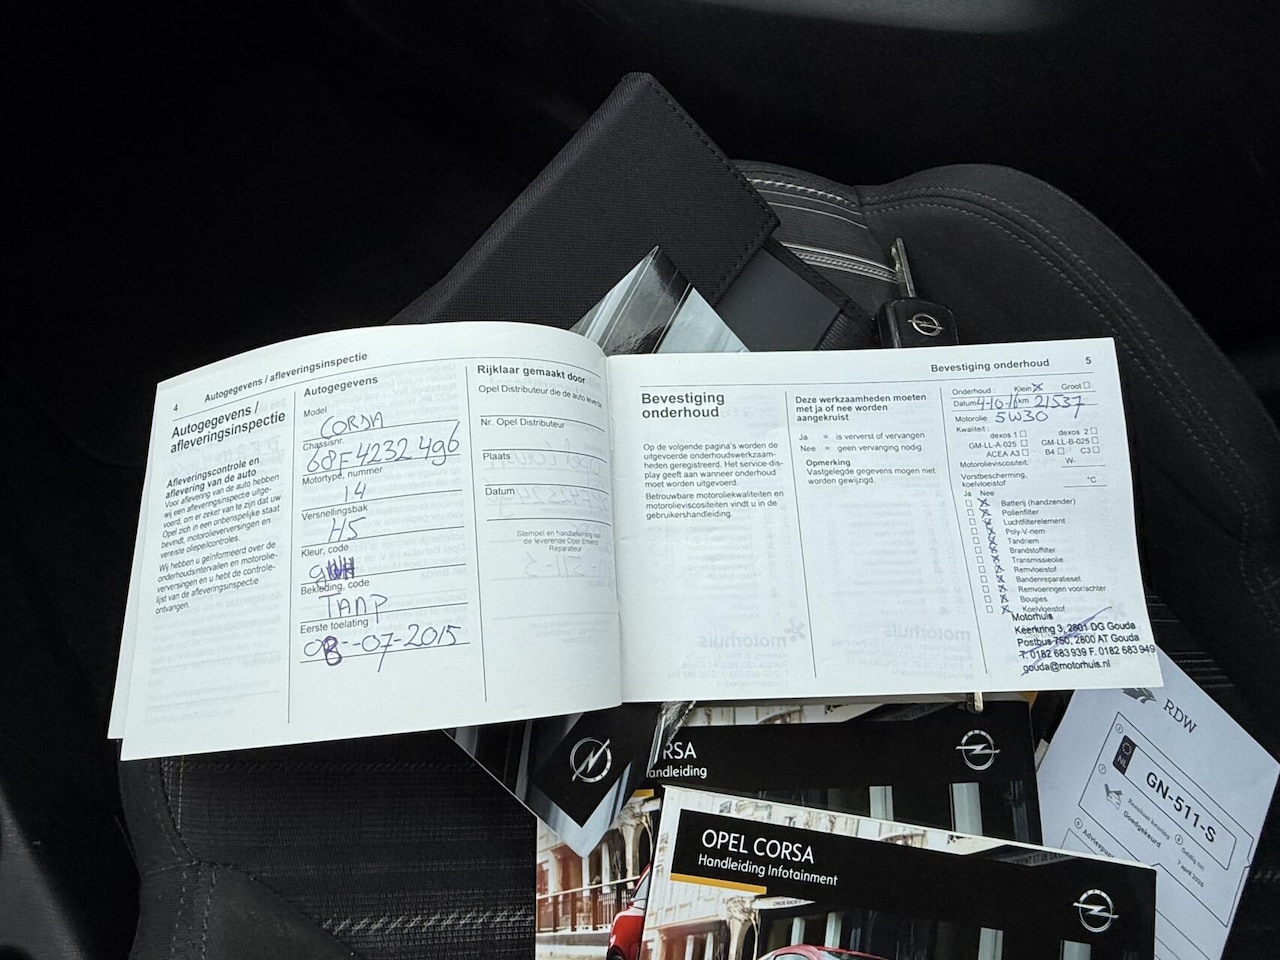 4 Autogegevens / afleveringsinspectie
Autogegevens /
afleveringsinspectie
Afleveringscontrole en
aflevering van de auto
Voor aflevering van de auto hebben
wij een afleveringsinspectie uitge-
voerd, om er zeker van te zijn dat uw
Opel zich in een onbenpelijke staat
bevindt, motorolieverversingen en
vereiste oliepeilcontroles.
Wij hebben u geïnformeerd over de
onderhoudsintervallen en motorolie-
verversingen en u hebt de controle-
lijst van de afleveringsinspectie
ontvangen.
Autogegevens
Model
CORSA
Chassisnr.
68F4232496
Motortype, nummer
14
Versnellingsbak
H5
Kleur, code
Bekleding, code
TAAP
Eerste toelating
08-07-2015
Rijklaar gemaakt door
Opel Distributeur die de auto leverde
Nr. Opel Distributeur
Plaats
Datum
Stempel en handtekening van
de leverende Opel Erkend
Reparateur
Bevestiging onderhoud 5
Bevestiging
onderhoud
Op de volgende pagina's worden de
uitgevoerde onderhoudswerkzaam-
heden geregistreerd. Het service-dis-
play geeft aan wanneer onderhoud
moet worden uitgevoerd.
Betrouwbare motoroliekwaliteiten en
motorolieviscositeiten vindt u in de
gebruikershandleiding.
Deze werkzaamheden moeten
met ja of nee worden
aangekruist
Ja = is ververst of vervangen
Nee = geen vervanging nodig
Opmerking
Vastgelegde gegevens mogen niet
worden gewijzigd.
Onderhoud : Klein Groot
Datum 4-10-16 km 21537
Motorolie 5W30
Kwaliteit :
dexos 1 dexos 2
GM-LL-A-025 GM-LL-B-025
ACEA A3 B4 C3
Motorolieviscositeit: W-
Vorstbescherming,
koelvloeistof °C
Ja Nee
Batterij (handzender)
Pollenfilter
Luchtfilterelement
Poly-V-riem
Tandriem
Brandstoffilter
Transmissieolie
Remvloeistof
Bandenreparatieset
Remvoeringen voor/achter
Bougies
Koelvloeistof
Motorhuis
Keerkring 3, 2801 DG Gouda
Postbus 750, 2800 AT Gouda
T. 0182 683 939 F. 0182 683 949
gouda@motorhuis.nl
RSA
andleiding
OPEL CORSA
Handleiding Infotainment
RDW
NL
GN-511-S
Goedgekeurd
Geldig tot
7 april 2026